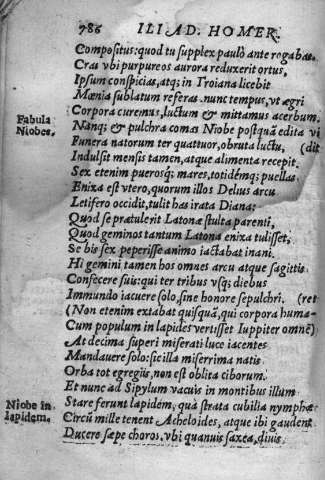 786 ILIAD. HOMER.
Compositus: quod tu supplex paulò ante rogabas.
Cras vbi purpureos aurora reduxerit ortus,
Ipsum conspicias, atq; in Troiana licebit
Mœnia sublatum referas. nunc tempus, vt ægri
Corpora curemus, luctum & mittamus acerbum.
Fabula Niobes.
Nanq; & pulchra comas Niobe postquã edita vi
Funera natorum ter quattuor, obruta luctu, (dit
Indulsit mensis tamen, atque alimenta recepit.
Sex etenim puerosq; mares, totidémq; puellas
Enixa est vtero, quorum illos Delius arcu
Letifero occidit, tulit has irata Diana:
Quòd se prætulerit Latonæ stulta parenti,
Quòd geminos tantum Latona enixa tulisset,
Se bis sex peperisse animo iactabat inani.
Hi gemini tamen hos omnes arcu atque sagittis
Confecere suis: qui ter tribus vsq; diebus
Immundo iacuere solo, sine honore sepulchri. (ret
(Non etenim extabat quisquã, qui corpora huma-
Cum populum in lapides vertisset Iuppiter omnẽ)
At decima superi miserati luce iacentes
Mandauere solo: sic illa miserrima natis
Orba tot egregiis, non est oblita ciborum.
Et nunc ad Sipylum vacuis in montibus illum
Niobe in lapidem.
Stare ferunt lapidem, quà strata cubilia nymphæ
Circũ mille tenent Acheloides, atque ibi gaudent
Ducere sæpe choros. vbi quanuis saxea, diuis